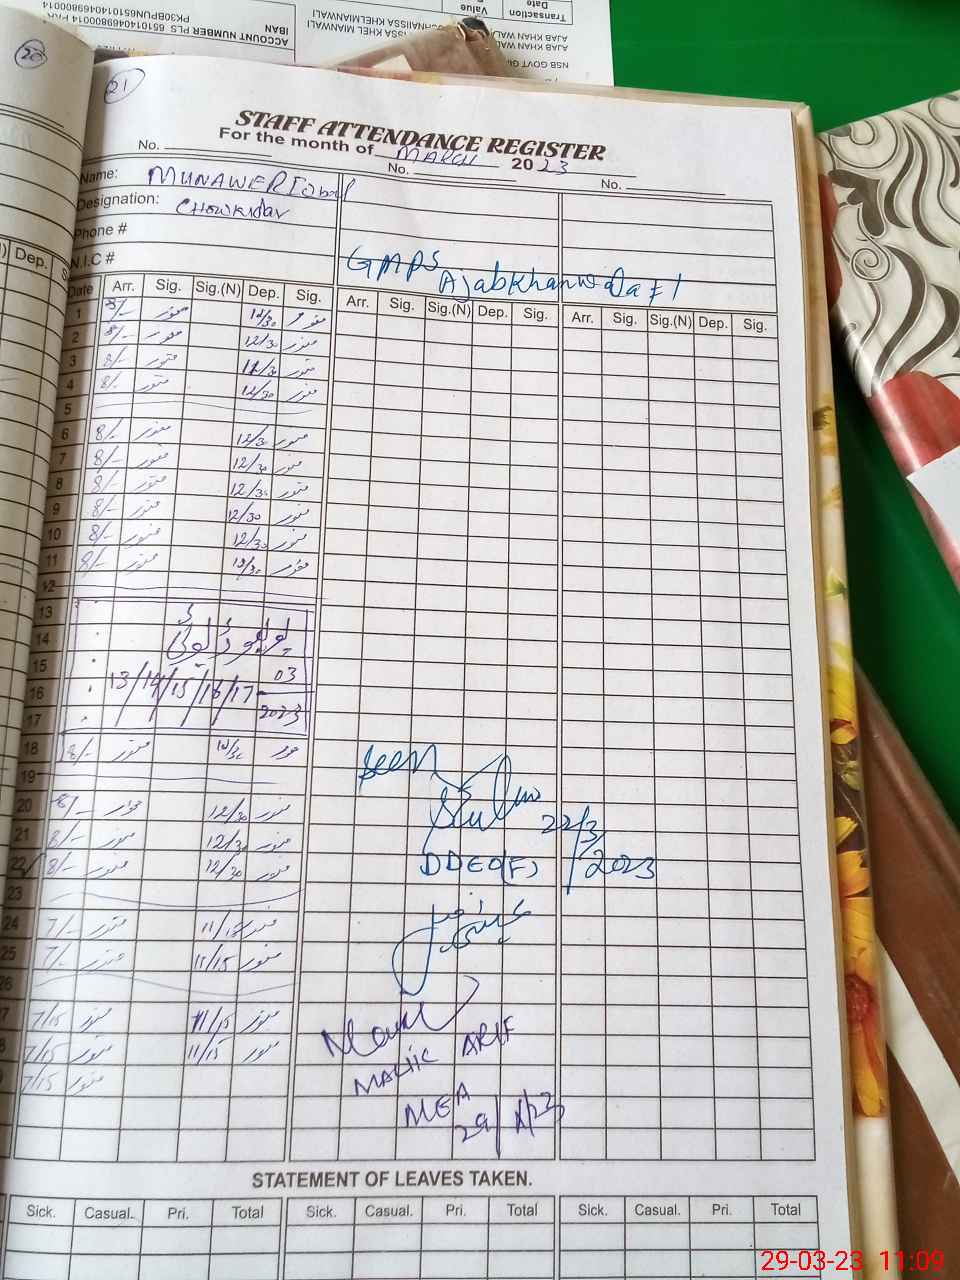 Transaction Date
Value
NSB GOVT
ACCOUNT NUMBER PLS
IBAN
20
21
STAFF ATTENDANCE REGISTER
For the month of MARCH 2023
No. No. No.
Name: MUNAWER Iqbal
Designation: Chowkidar
Phone #
N.I.C #
GMPS
Ajabkhanwala F1
Dep.
Date Arr. Sig. Sig.(N) Dep. Sig. Arr. Sig. Sig.(N) Dep. Sig. Arr. Sig. Sig.(N) Dep. Sig.
1 8/- منور 12/30 منور
2 8/- منور 12/30 منور
3 8/- منور 12/30 منور
4 8/- منور 12/30 منور
5
6 8/- منور 12/30 منور
7 8/- منور 12/30 منور
8 8/- منور 12/30 منور
9 8/- منور 12/30 منور
10 8/- منور 12/30 منور
11 8/- منور 12/30 منور
12
13
14 پولیو ڈیوٹی
15
16 13/14/15/16/17-03
17 2023
18 8/- منور 12/30 منور
19 Seen
20 8/- منور 12/30 منور
21 8/- منور 12/30 منور 22/3/2023
22 8/- منور 12/30 منور DDEO(F)
23
24 7/- منور 11/15 منور
25 7/- منور 11/15 منور
26
7/15 منور 11/15 منور
7/15 منور 11/15 منور
7/15 منور
MALIK ARIF
MEA
STATEMENT OF LEAVES TAKEN.
Sick. Casual. Pri. Total Sick. Casual. Pri. Total Sick. Casual. Pri. Total
29-03-23 11:09